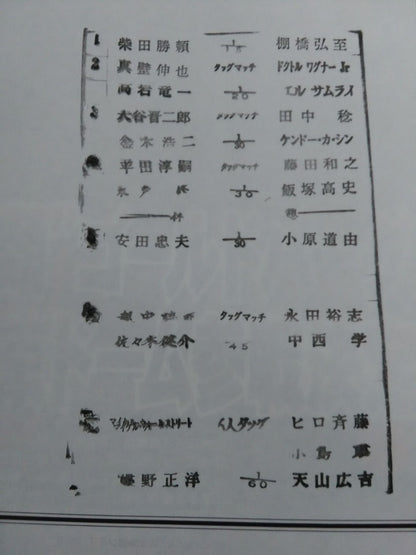 1 柴田勝頼 1/15 棚橋弘至
2 真壁伸也 タッグマッチ ドクトル ワグナー Jr
高岩竜一 1/20 エル サムライ
3 大谷晋二郎 タッグマッチ 田中稔
金本浩二 1/30 ケンドー・カ・シン
平田淳嗣 タッグマッチ 藤田和之
1/30 飯塚高史
憩
安田忠夫 1/30 小原道由
タッグマッチ 永田裕志
佐々木健介 45 中西学
人タッグ ヒロ斉藤
小島
蝶野正洋 1/60 天山広吉